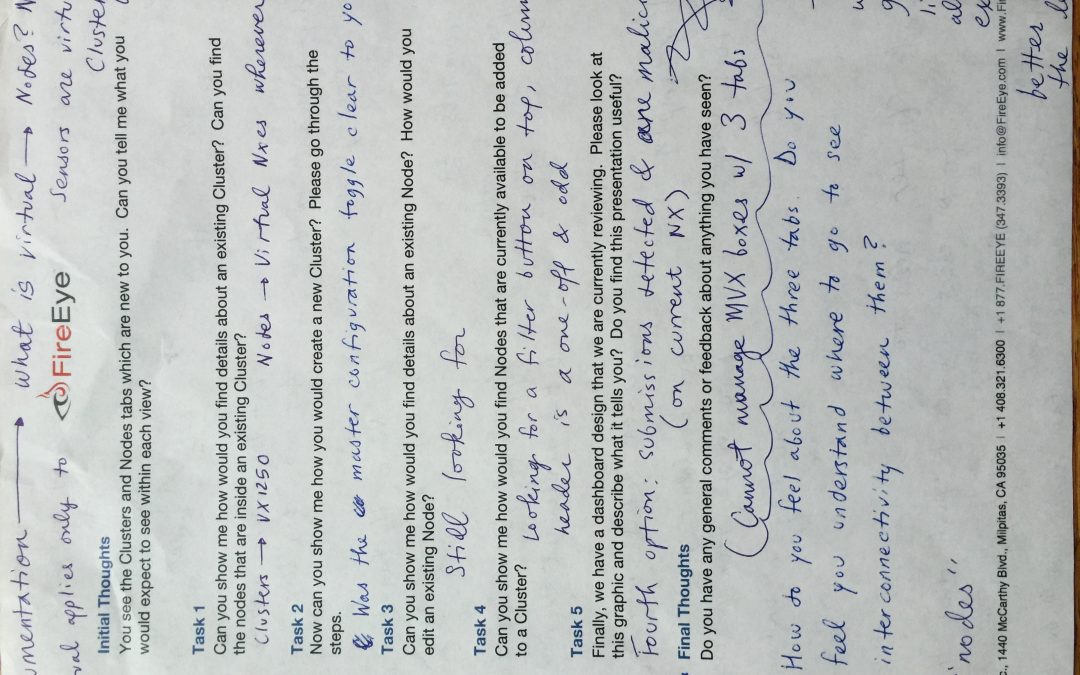 umentation → what is virtual → Nodes? N
val applies only to
Sensors are virtu
Cluster
FireEye
Initial Thoughts
You see the Clusters and Nodes tabs which are new to you. Can you tell me what you
would expect to see within each view?
Task 1
Can you show me how would you find details about an existing Cluster? Can you find
the nodes that are inside an existing Cluster?
Clusters → VX1250 Nodes → Virtual Nxes wherever
Task 2
Now can you show me how you would create a new Cluster? Please go through the
steps.
Was the master configuration toggle clear to yo
Task 3
Can you show me how would you find details about an existing Node? How would you
edit an existing Node?
Still looking for
Task 4
Can you show me how would you find Nodes that are currently available to be added
to a Cluster?
Looking for a filter button on top, colum
header is a one-off & odd
Task 5
Finally, we have a dashboard design that we are currently reviewing. Please look at
this graphic and describe what it tells you? Do you find this presentation useful?
Fourth option: submissions detected & are malici
(on current NX)
Final Thoughts
Do you have any general comments or feedback about anything you have seen?
Cannot manage MVX boxes w/ 3 tabs
How do you feel about the three tabs. Do you
feel you understand where to go to see
interconnectivity between them?
"nodes"
c., 1440 McCarthy Blvd., Milpitas, CA 95035 | +1 408.321.6300 | +1 877.FIREEYE (347.3393) | info@FireEye.com | www.Fir
better
the